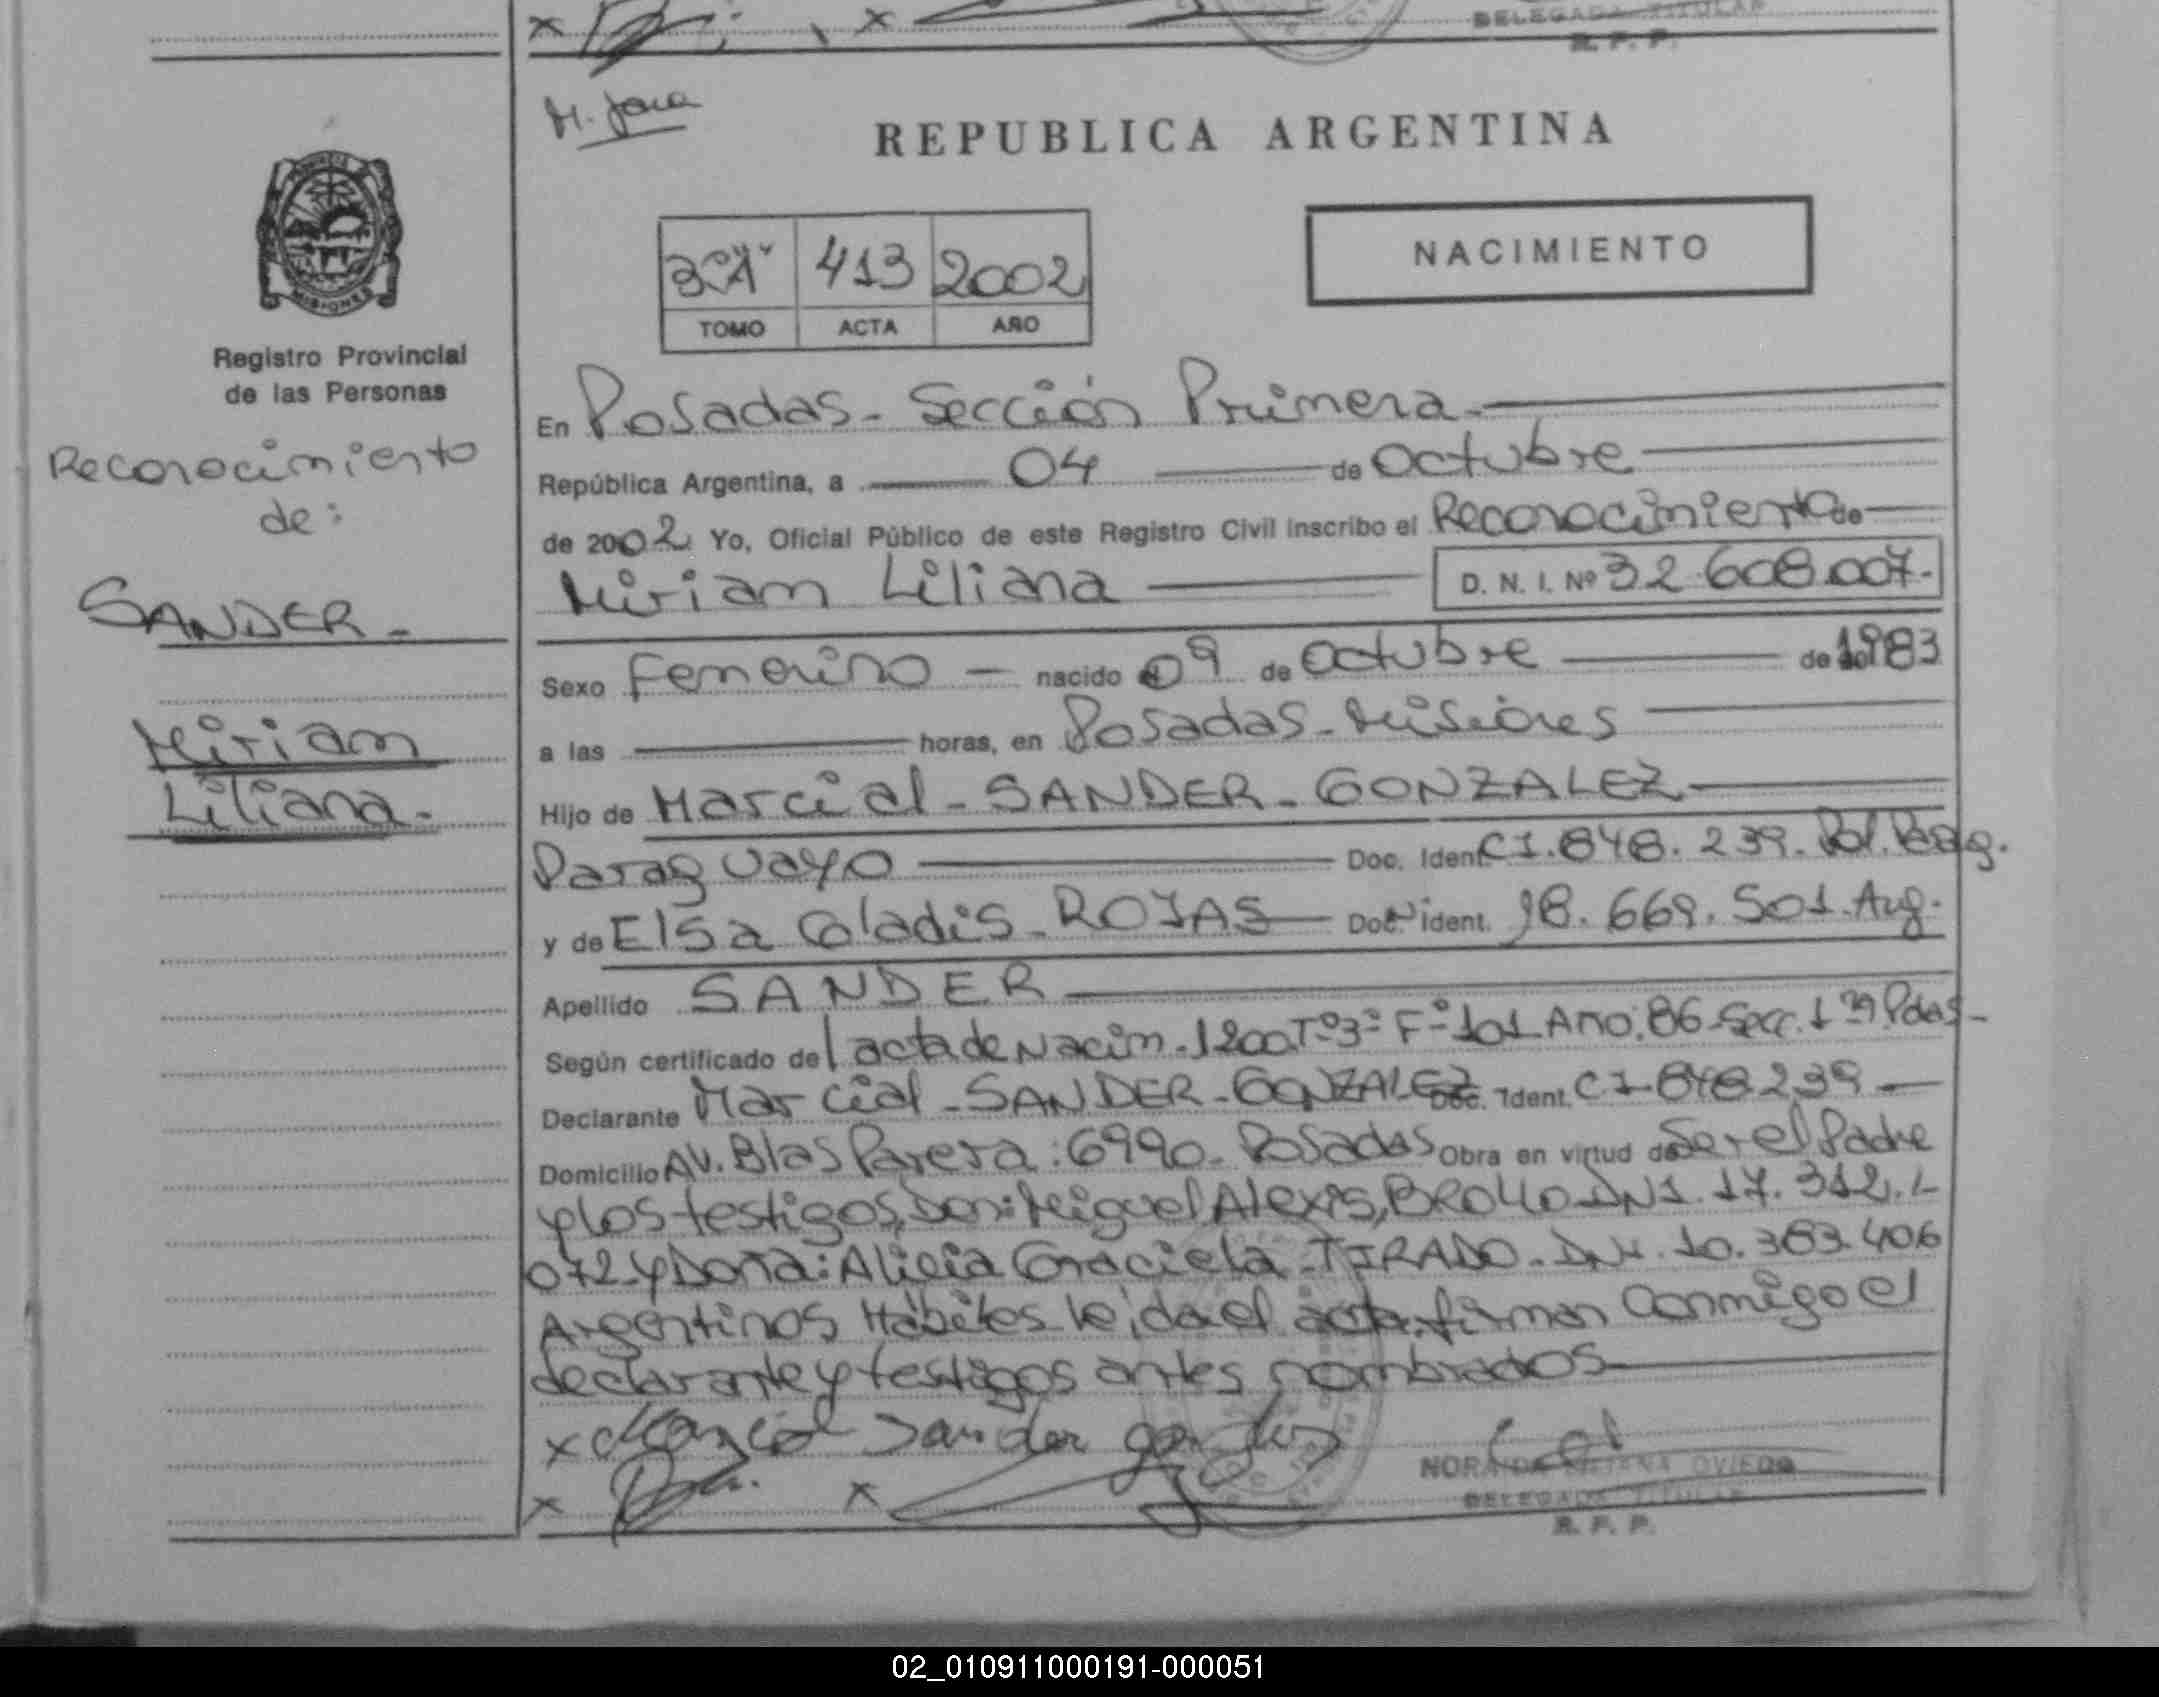 DELEGADA TITULAR
R. P. P.
REPUBLICA ARGENTINA
NACIMIENTO
3º "A" 413 2002
TOMO ACTA AÑO
MISIONES
Registro Provincial
de las Personas
Reconocimiento
de:
SANDER-
Miriam
Liliana-
En Posadas - Sección Primera-
República Argentina, a 04 de Octubre
de 2002 Yo, Oficial Público de este Registro Civil inscribo el Reconocimiento de
Miriam Liliana D. N. I. Nº 32.608.007.
Sexo Femenino - nacido 09 de Octubre de 1983
a las horas, en Posadas - Misiones
Hijo de Marcial - SANDER - GONZALEZ
Paraguayo Doc. Ident. CI. 848.239. Pol. Parag.
y de Elsa Gladis - ROJAS Doc. Ident. 18.669.501. Arg.
Apellido SANDER
Según certificado del acta de Nacim. 1200 Tº 3º Fº 101 Año: 86 Secc. 1ra Pdas-
Declarante Marcial - SANDER - GONZALEZ Doc. Ident. CI 848239
Domicilio AV. Blas Parera: 6990. Posadas Obra en virtud de Ser el Padre
y los testigos, Don: Miguel Alexis, BROLLO DNI. 17.312.-
072 y Doña: Alicia Graciela - TIRADO - DNI. 10.383.406
Argentinos Hábiles leída el acta, firman Conmigo el
declarante y testigos antes nombrados
x Marcial Sander
NORA LILIANA OVIEDO
DELEGADA TITULAR
R. P. P.
02_010911000191-000051